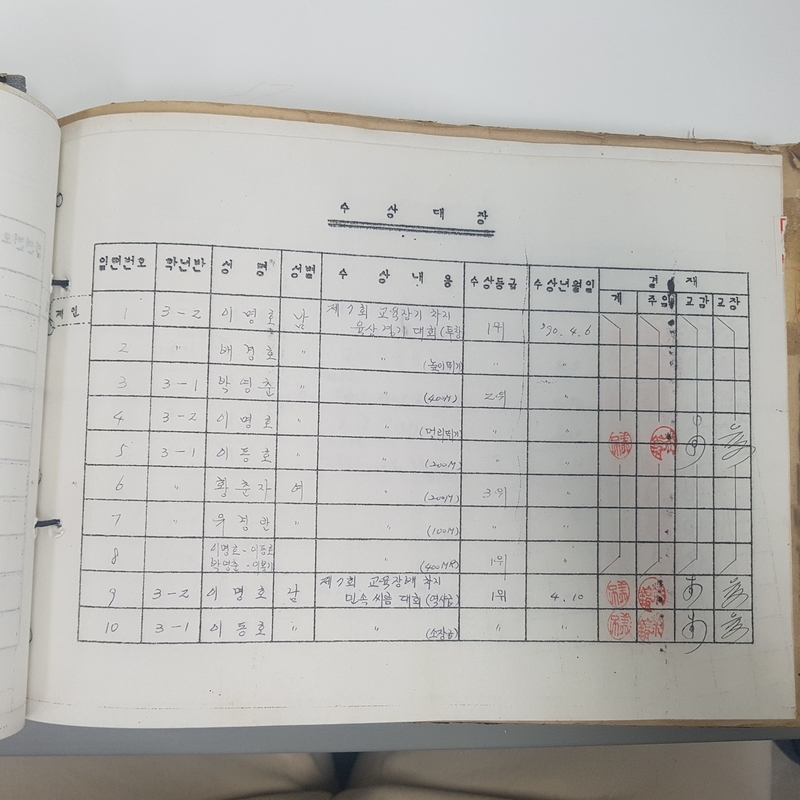 수 상 대 장
일련번호 학년반 성 명 성별 수 상 내 용 수상등급 수상년월일 결 재
계 주임 교감 교장
재 인
1 3-2 이 명 호 남 제 7회 교육장기 차지
육상경기 대회 (투창) 1위 '90. 4. 6
2 〃 배 경 호 〃 〃 (높이뛰기) 〃 〃
3 3-1 박 영 춘 〃 〃 (400M) 2위 〃
4 3-2 이 명 호 〃 (멀리뛰기) 〃 〃
5 3-1 이 동 호 〃 〃 (200M) 〃 〃
6 〃 황 춘 자 여 〃 (200M) 3위 〃
7 〃 우 경 란 〃 〃 (100M) 〃 〃
8 이명호 - 이동호
박영춘 〃 (400MR) 1위 〃
9 3-2 이 명 호 남 제 7회 교육장배 차지
민속 씨름 대회 1위 4. 10
10 3-1 이 동 호 〃 〃 〃 〃